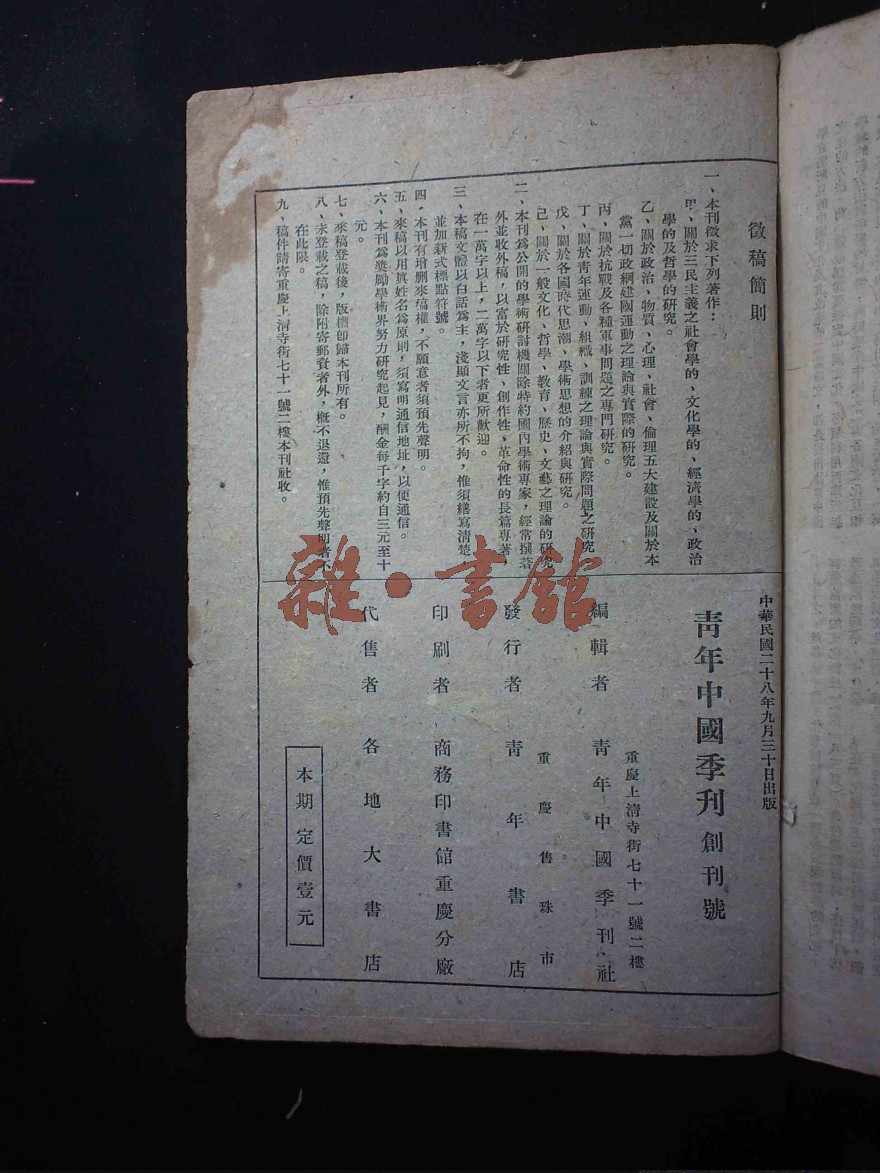 徵稿簡則
一、本刊徵求下列著作：
甲、關於三民主義之社會學的、文化學的、經濟學的、政治
學的及哲學的研究。
乙、關於政治、物質、心理、社會、倫理五大建設及關於本
黨一切政綱建國運動之理論與實際的研究。
丙、關於抗戰及各種軍事問題之專門研究。
丁、關於青年運動、組織、訓練之理論與實際問題之研究
戊、關於各國時代思潮、學術思想的介紹與研究。
己、關於一般文化、哲學、教育、歷史、文藝之理論的研究
二、本刊爲公開的學術研討機關除特約國內學術專家，經常撰著
外並收外稿，以富於研究性、創作性、革命性的長篇專著，
在一萬字以上，二萬字以下者更所歡迎。
三、本稿文體以白話爲主，淺顯文言亦所不拘，惟須繕寫清楚
並加新式標點符號。
四、本刊有增刪來稿權，不願意者須預先聲明。
五、來稿以用眞姓名爲原則，須寫明通信地址，以便通信。
六、本刊爲獎勵學術界努力研究起見，酬金每千字約自三元至十
元。
七、來稿登載後，版權卽歸本刊所有。
八、未登載之稿，除附寄郵資者外，概不退還，惟預先聲明者不
在此限。
九、稿件請寄重慶上清寺街七十一號二樓本刊社收。
中華民國二十八年九月三十日出版
青年中國季刊 創刊號
重慶上清寺街七十一號二樓
編輯者 青年中國季刊社
重慶售珠市
發行者 青年書店
印刷者 商務印書館重慶分廠
代售者 各地大書店
本期定價壹元
雜·書館